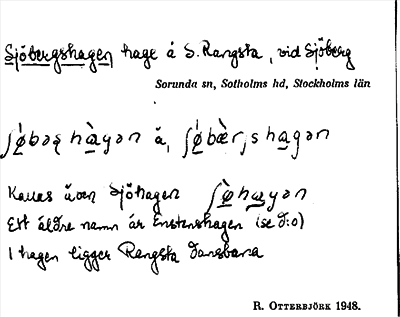 Sjöbergshagen hage å S. Rangsta, vid Sjöberg
Sorunda sn, Sotholms hd, Stockholms län
Kallas även Sjöhagen
Ett äldre namn är Enstenshagen (se d:o)
I hagen ligger Rangsta dansbana
R. OTTERBJÖRK 1948.